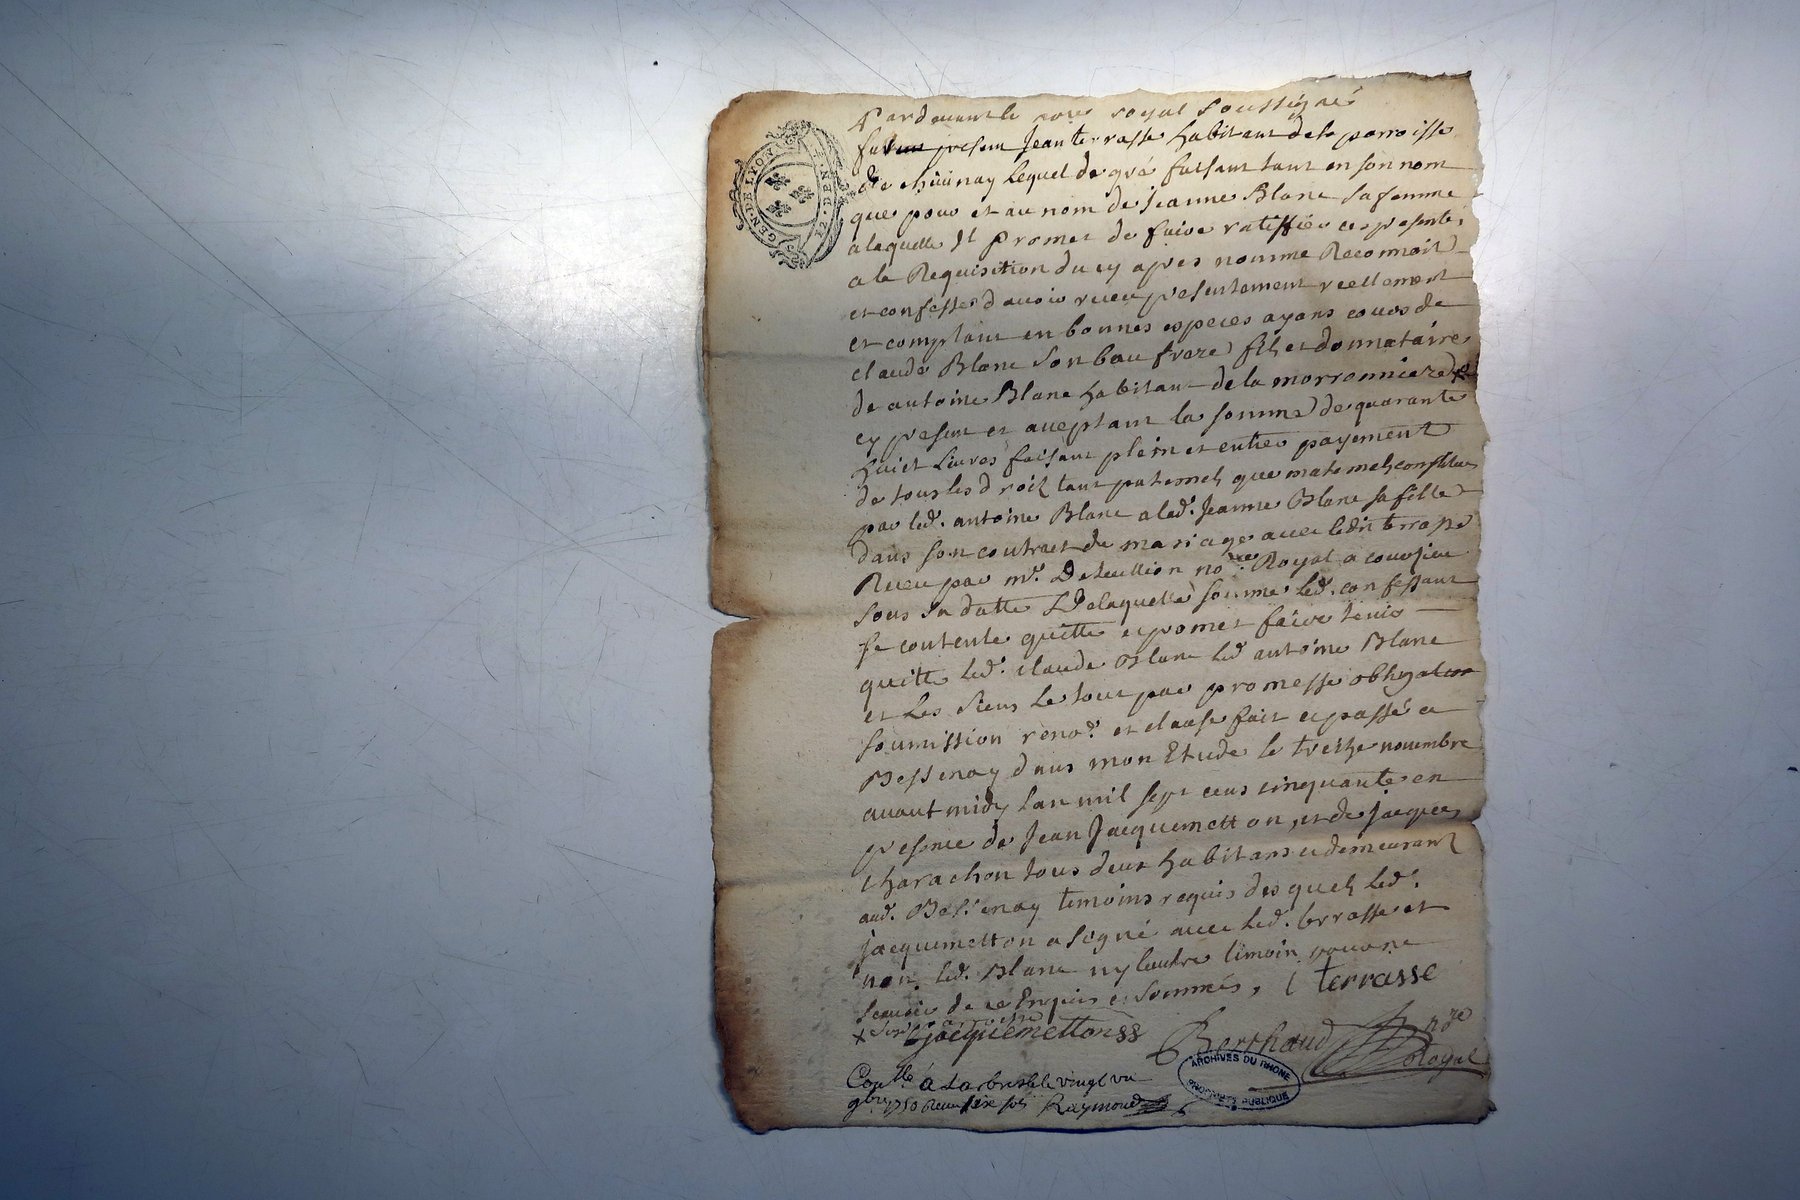 GEN. DE LYON
Pardevant le nore royal soussigné
fut present Jean terrasse habitant de la parroisse
de chiunay lequel de gré faisant tant en son nom
que pour et au nom de jeanne Blanc sa femme
a laquelle Il promet de faire ratiffier ces presentes
a la Requisition du cy apres nommé Reconnoit
et confesse davoir receu presentement reellement
et comptant en bonnes especes ayans cours de
claude Blanc son beau frere fils et donnataire
de antoine Blanc habitant de la morronniere x
cy present et aceptant la somme de quarante
huict Livres faisant plein et entier payement
de tous les droits tant paternels que maternels constitues
par led. antoine Blanc a lad. Jeanne Blanc sa fille
dans son contract de mariage avec ledit terrasse
Receu par me. no.re Royal a courzieu
sous sa datte De laquelle somme led. confessant
se contente quitte et promet faire tenir
quitte led. claude Blanc led antoine Blanc
et Les siens Le tout par promesse obligation
soumission reno.on et clause fait et passé a
Bessenay dans mon Etude le treize novembre
avant midy lan mil sept cens cinquante en
presence de Jean Jacquemetton, et de jacques
charachon tous deux habitans et demeurant
aud. Bessenay temoins requis desquels led.
jacquemetton a signé avec led. terrasse et
non led. Blanc ny lautre temoin pour ne
scavoir de ce Enquis et sommés, J terrasse
jacquemettonss Berthaud nore Royal
Con.lle a Labresle le vingt un
gbre 1750 Receu six sols Raymond
ARCHIVES DU RHONE
PROPRIÉTÉ PUBLIQUE